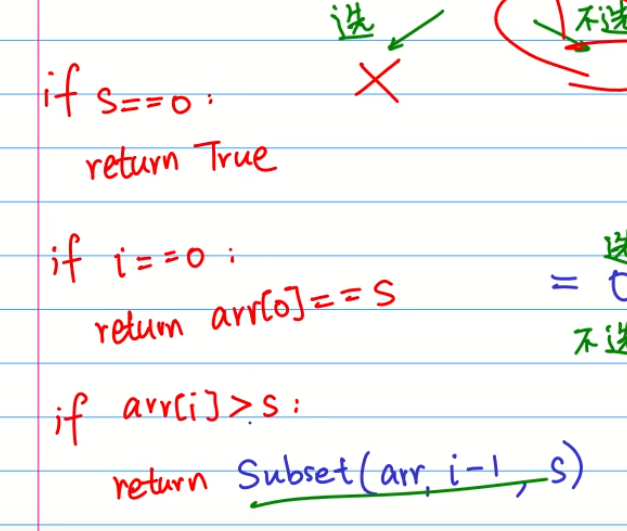 选 不选
if s==0:
return True
if i==0:
选
return arr[0]==s =
不选
if arr[i]>s:
return Subset(arr, i-1, s)